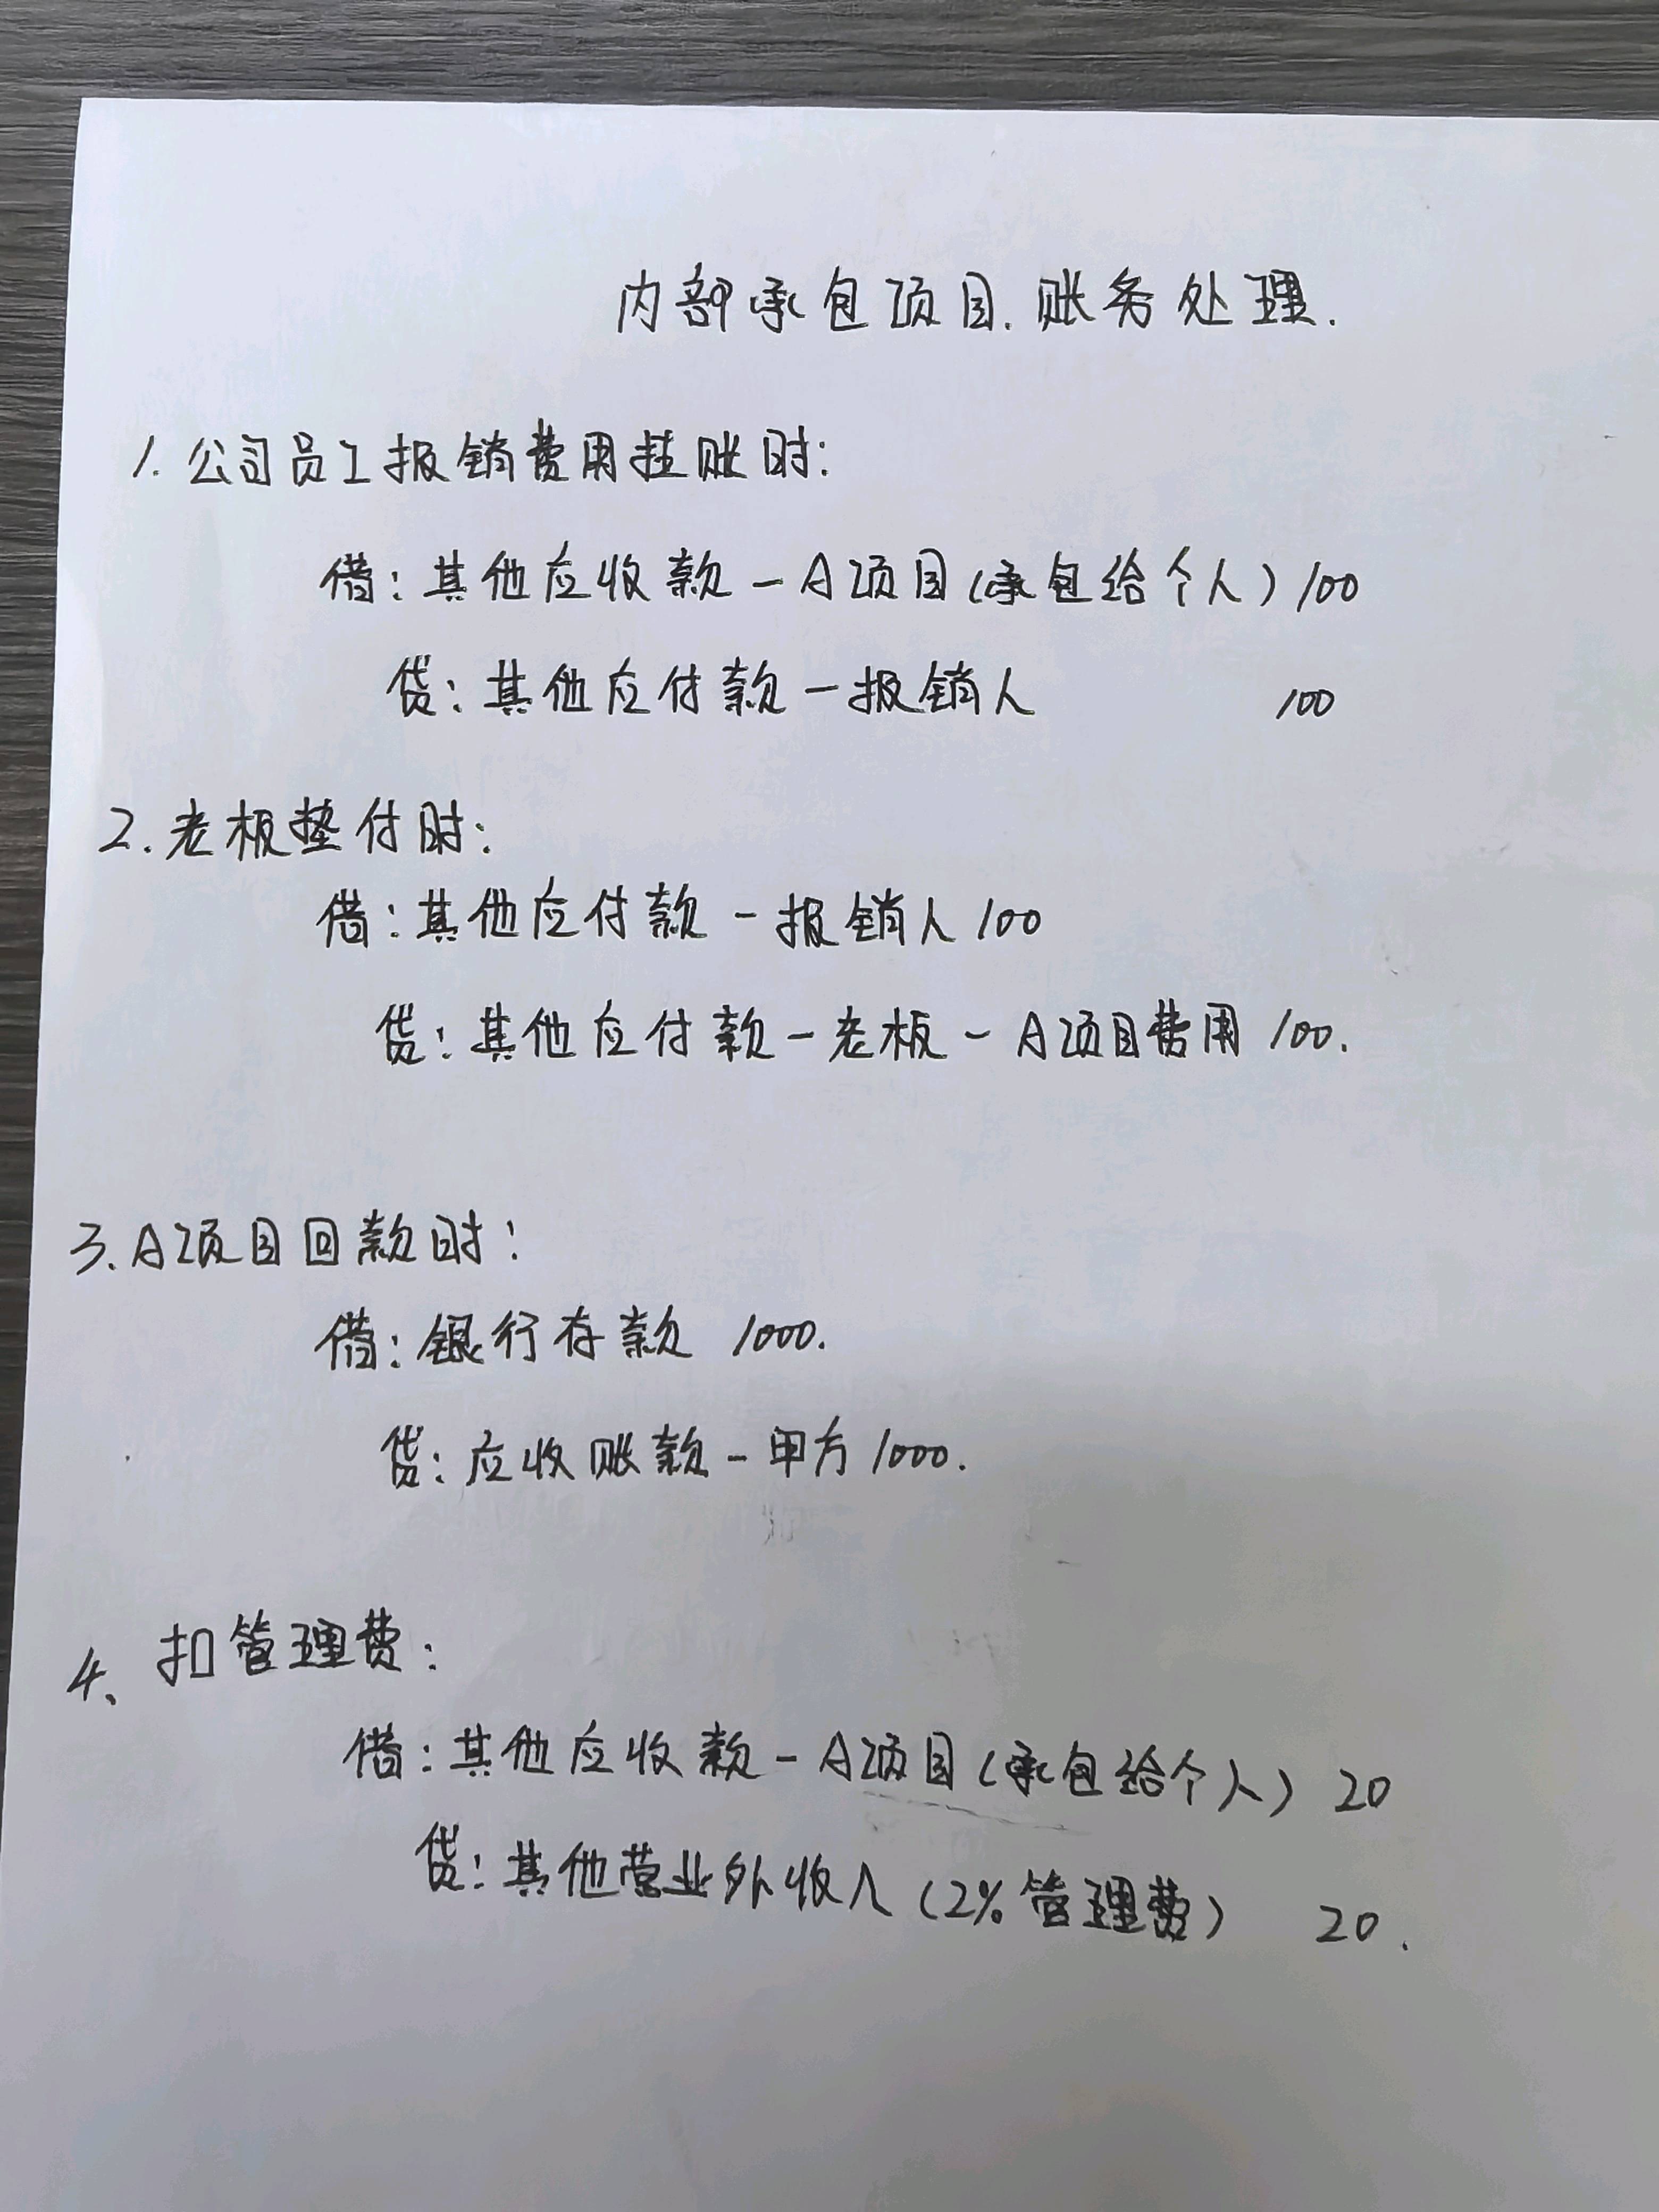 内部承包项目.账务处理.
1.公司员工报销费用挂账时:
借:其他应收款-A项目(承包给个人)100
贷:其他应付款-报销人 100
2.老板垫付时:
借:其他应付款-报销人 100
贷:其他应付款-老板-A项目费用 100.
3.A项目回款时:
借:银行存款 1000.
贷:应收账款-甲方 1000.
4、扣管理费:
借:其他应收款-A项目(承包给个人) 20
贷:其他营业外收入(2%管理费) 20.